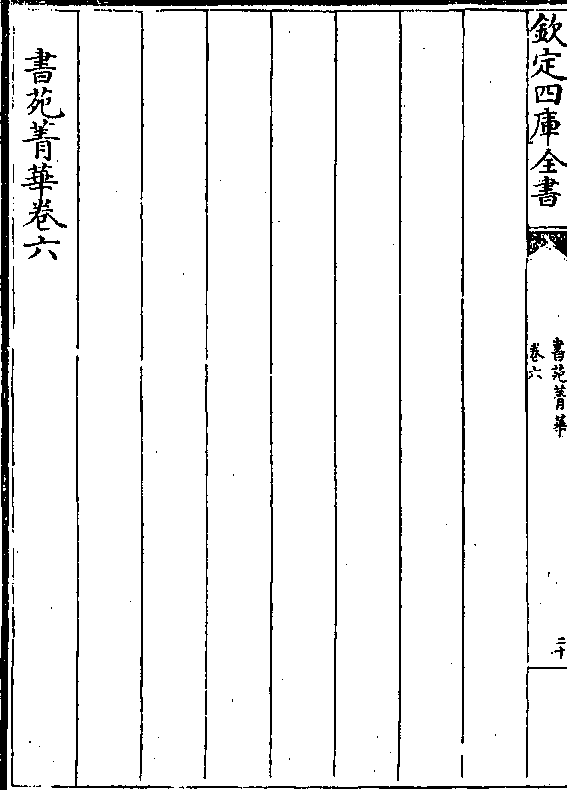 欽定四庫全書
書苑菁華
卷六
二十
書苑菁華卷六